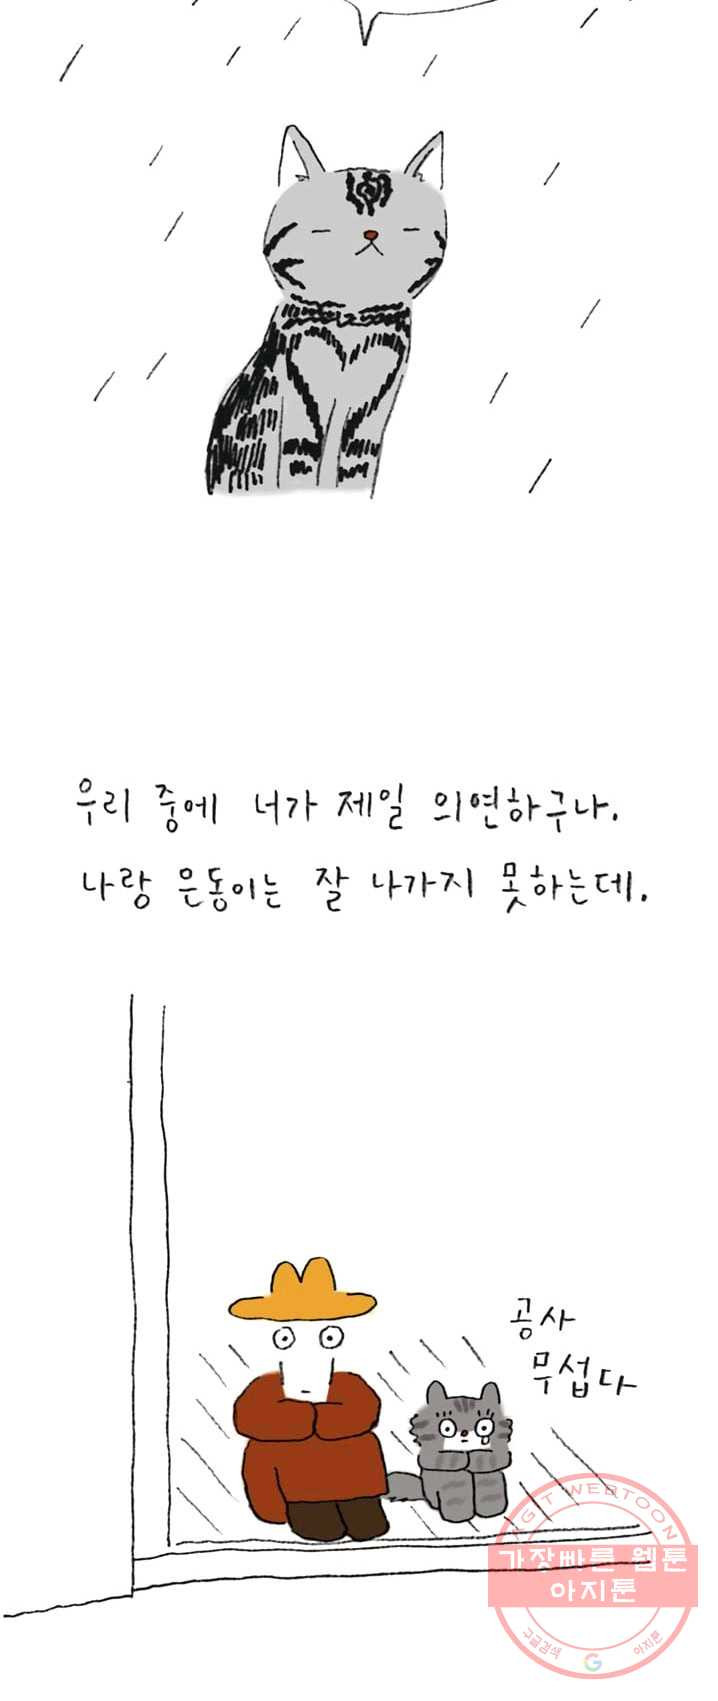 우리 중에 너가 제일 의연하구나.
나랑 은동이는 잘 나가지 못하는데.
공사
무섭다
AGIT WEBTOON
가장빠른 웹툰
아지툰
구글검색
G
아지툰